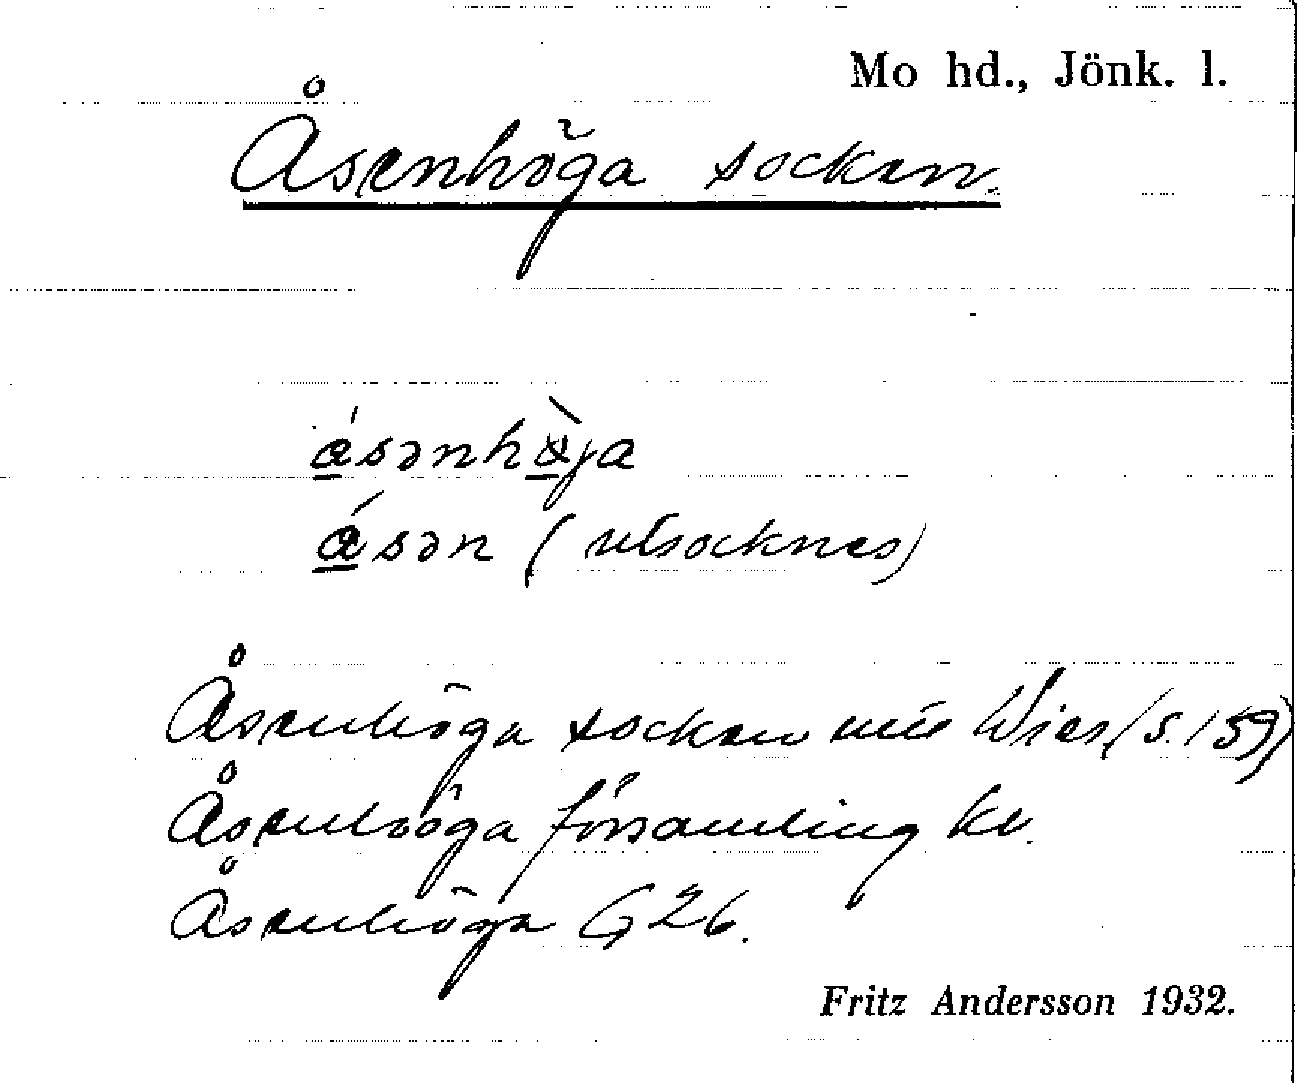 Mo hd., Jönk. l.
Åsenhöga socken.
åsənhöja
åsən (utsocknes)
Åsenhöga socken Wies. (s. 159)
Åsenhöga församling kv.
Åsenhöga G 26.
Fritz Andersson 1932.